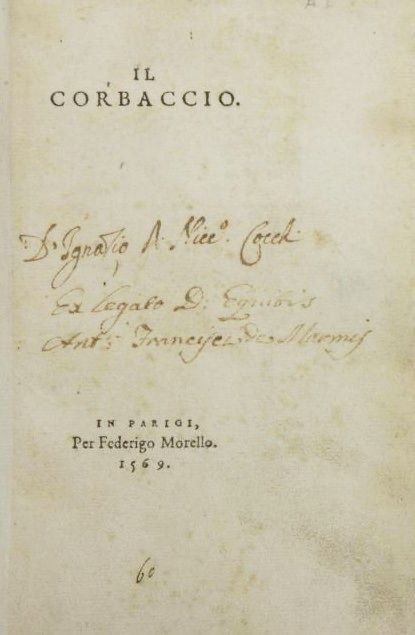 IL
CORBACCIO.
D. Ignatio Nicc.º
Ex legato D: Equitis
Ant.ij Francisci de Marmij
IN PARIGI,
Per Federigo Morello.
1569.
60